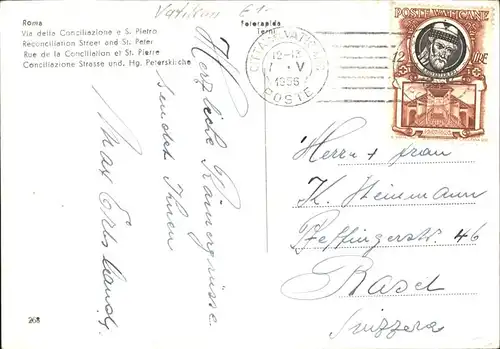 Roma
Via della Conciliazione e S. Pietro
Reconciliation Street and St. Peter
Rue de la Conciliation et St. Pierre
Conciliazione Strasse und. Hg. Peterskirche
Vatikan E1.
Fotorapida
Terni
CITTA DEL VATICANO
12-13
1 . V
1956
POSTE
POSTE VATICANE
12 LIRE
Herzliche Römergrüsse
sendet Ihnen
Max
Herrn + Frau
K. Heinmann
Bettingerstr. 46
Basel
Svizzera
268